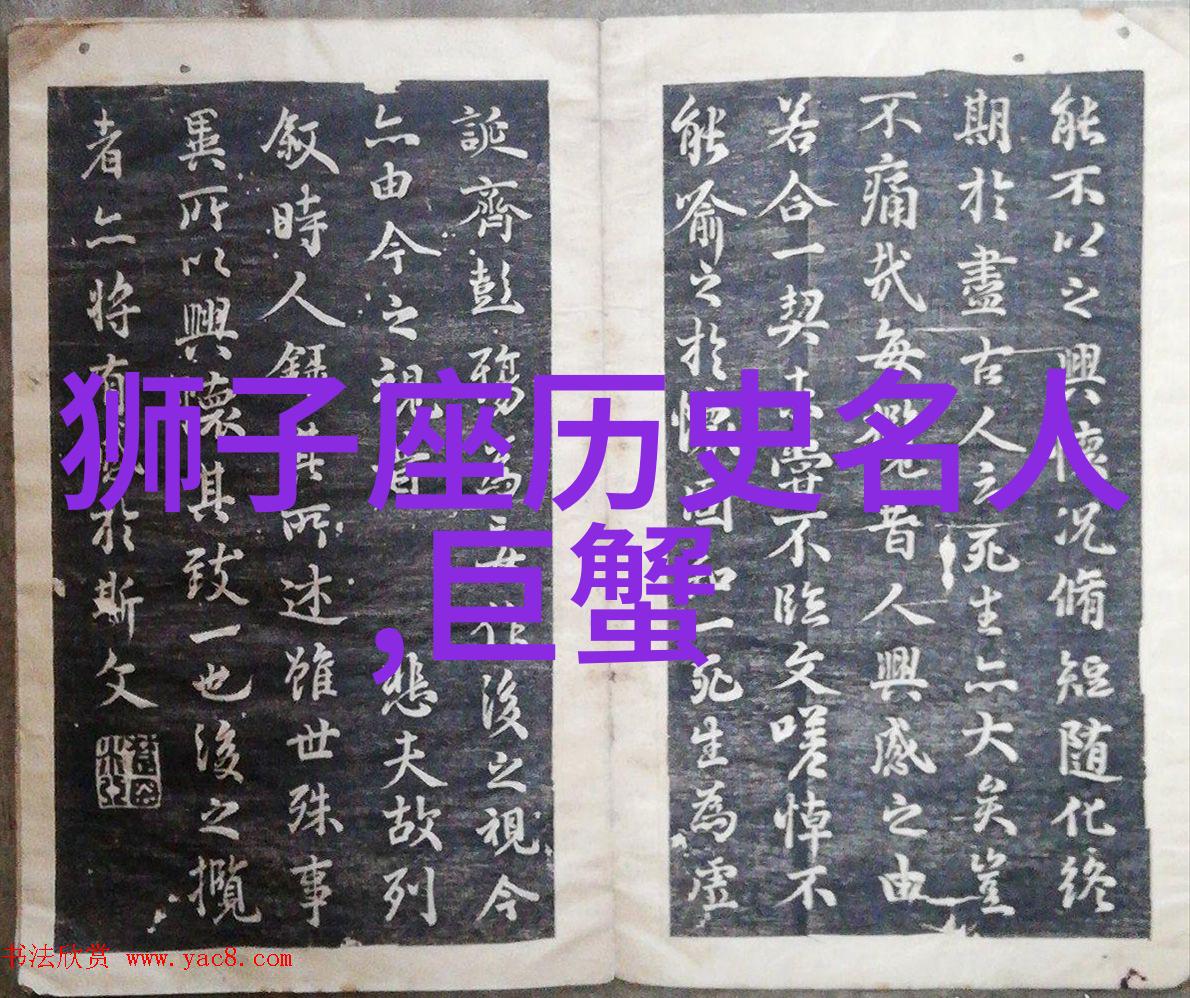 能不以之興懷況脩短随化終
期於盡古人之死生亦大矣豈
不痛哉每昔人興感之由
若合一契嘗不臨文嗟悼不
能喻之於懷固知一死生為虛
誕齊彭殤為妄作後之視今
亦由今之視昔悲夫故列
叙時人錄其所述雖世殊事
異所以興懷其致一也後之攬
者亦将有感於斯文
狮子座历史名人
,巨蟹
书法欣赏 www.yac8.com